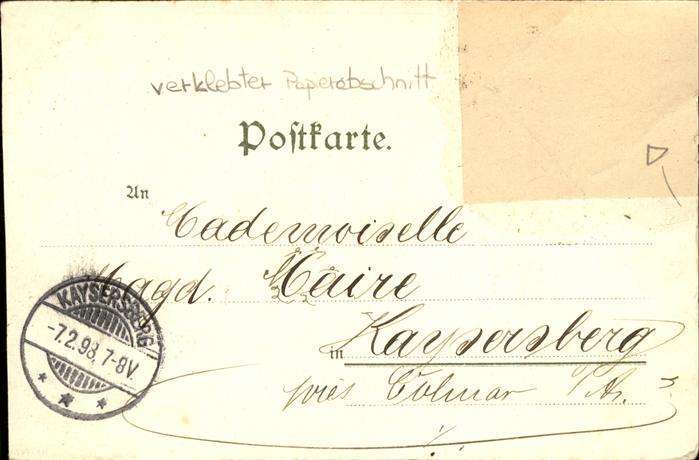 verklebter Paperabschnitt
Postkarte.
An
Mademoiselle
Magd. Maire
in Kaysersberg
près Colmar
KAYSERSBERG
-7.2.98, 7-8V.